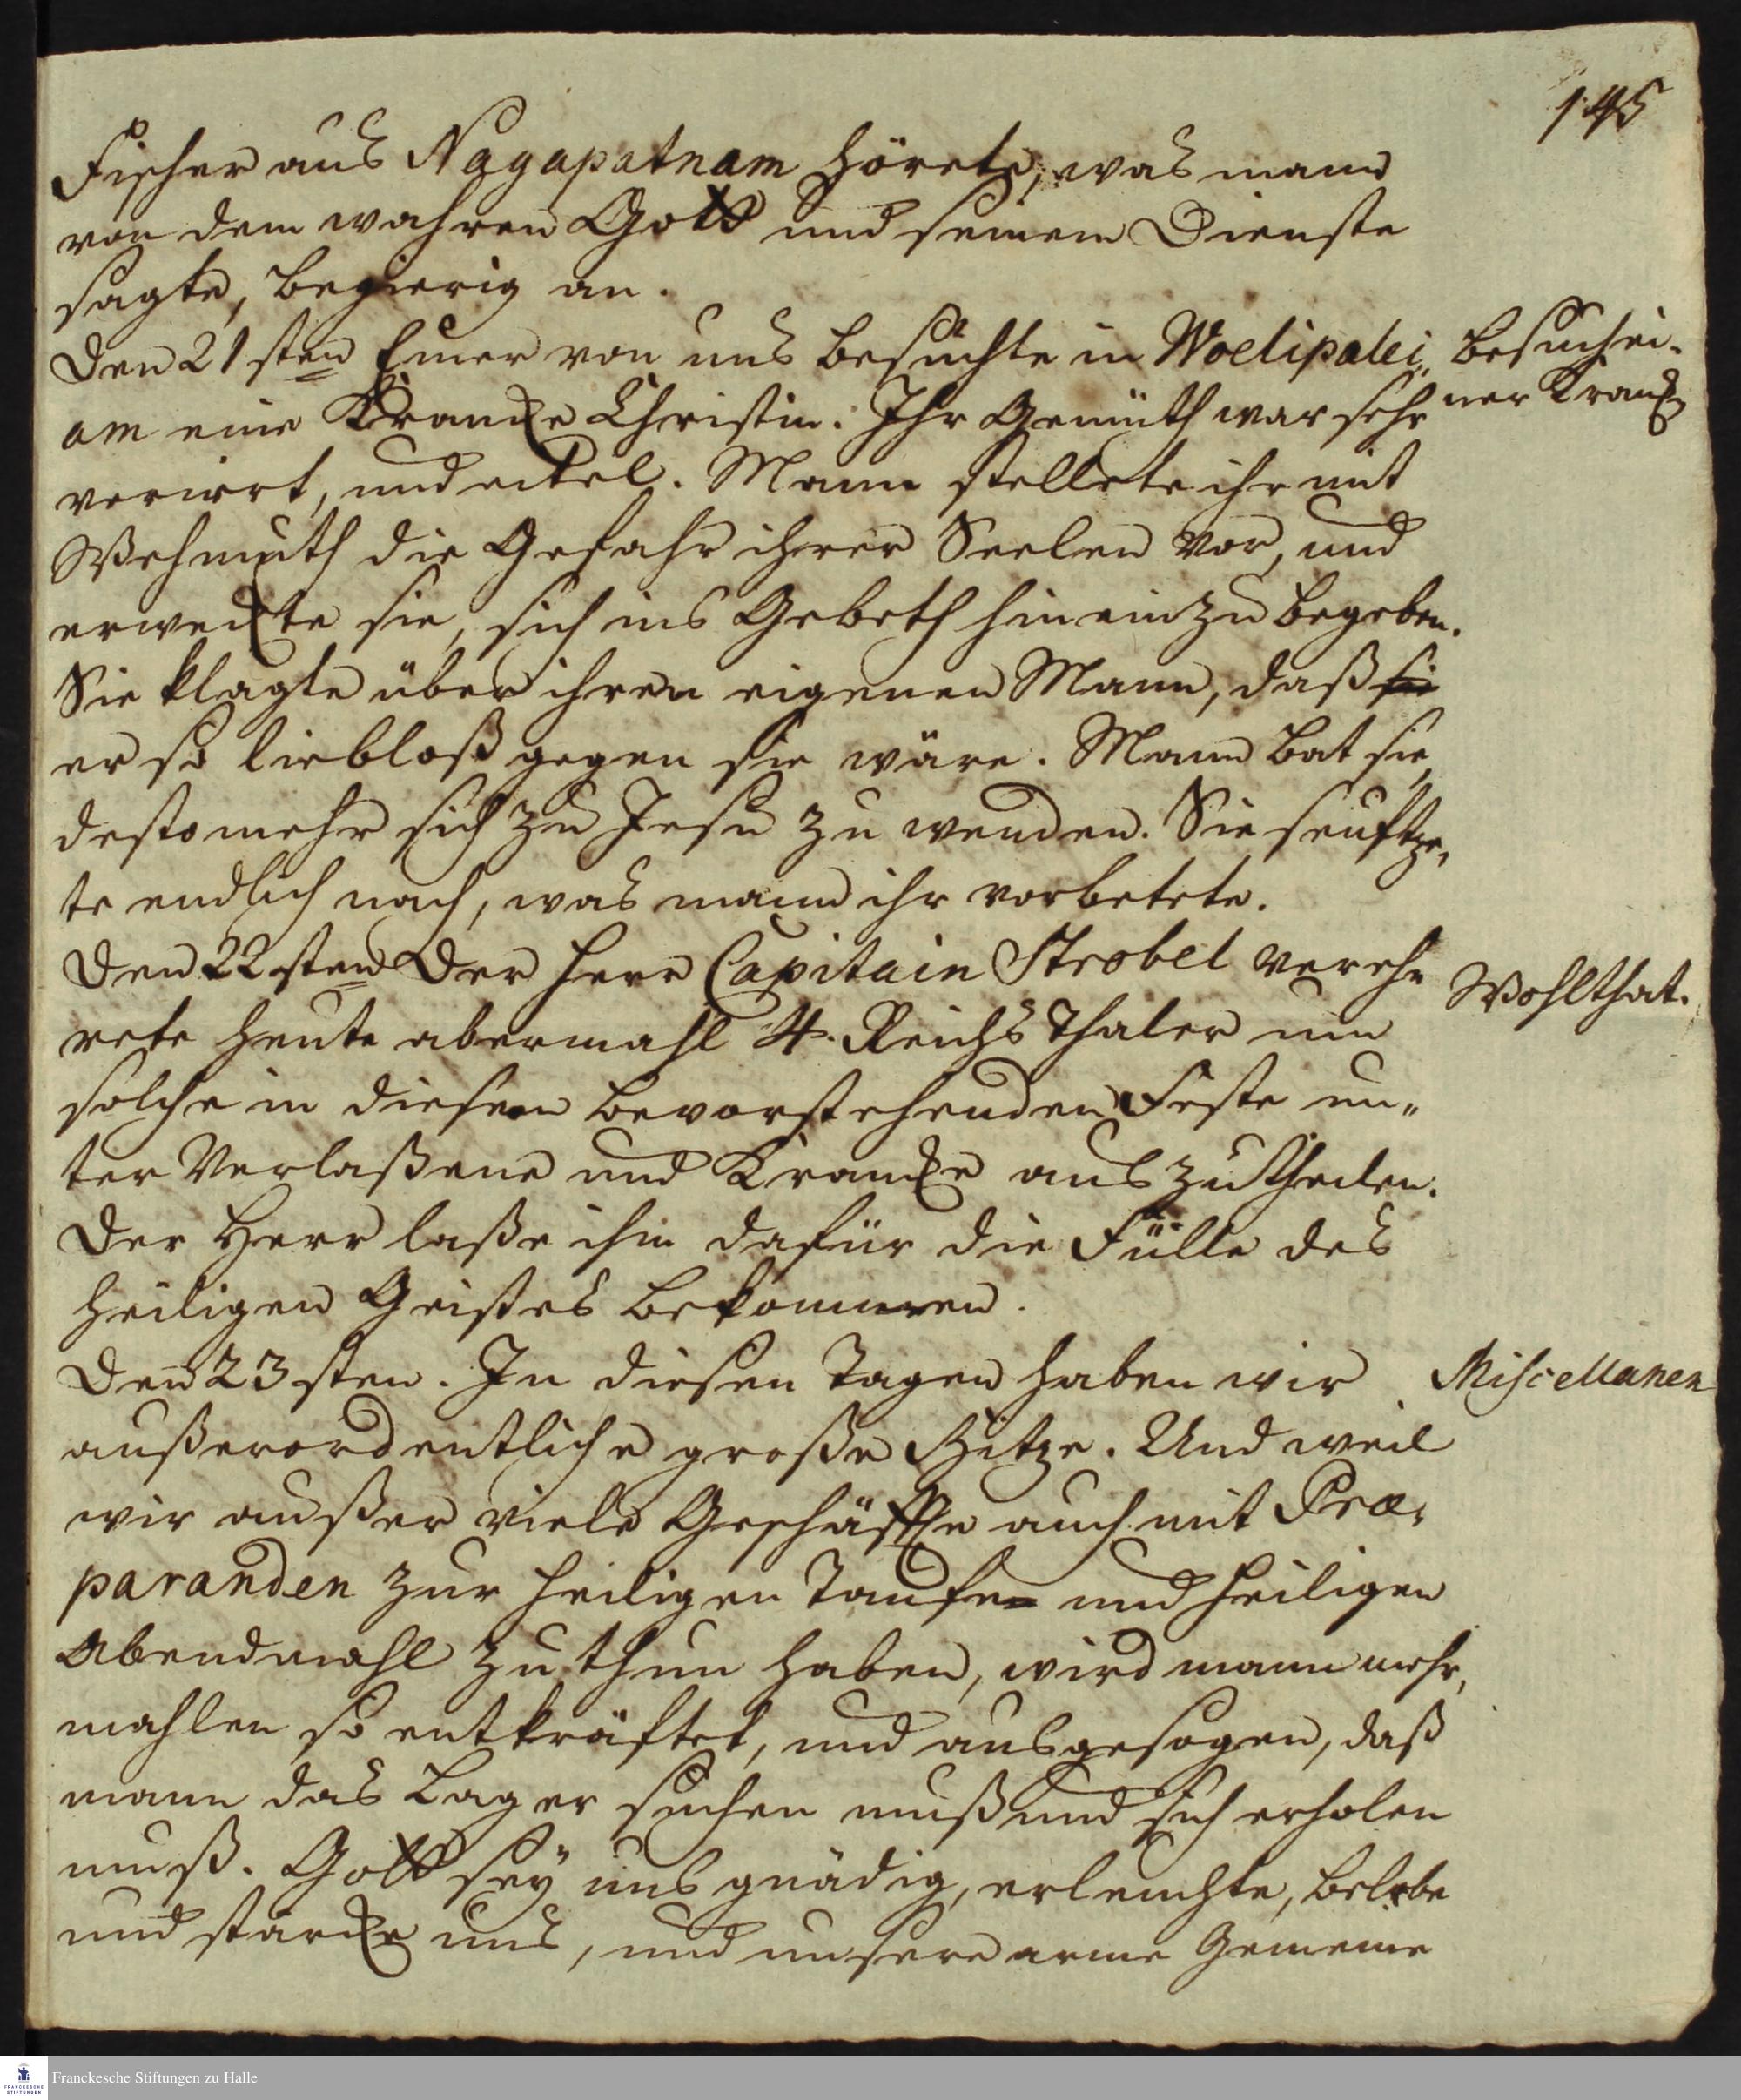 145
Fischer aus Nagapatnam hörete, was mann
von dem wahren Gott und seinem Dienste
sagte, begierig an.
Den 21sten Einer von uns besuchte in Woelipalei„
am eine Krancke Christin. Ihr Gemüth war sehr
verirrt, und eitel. Mann stellete ihr mit
Wehmuth die Gefahr ihrer Seelen vor, und
erweckte sie, sich ins Gebeth hinein zu begeben.
Sie klagte über ihren eigenen Mann, daß sie
er so liebloß gegen sie wäre. Mann bat sie,
desto mehr sich zu Jesu zu wenden. Sie seuftze„
te endlich nach, was mann ihr vorbetete.
Den 22sten Der Herr Capitain Strobel vereh
rete heute abermahl 4. Reichs Thaler um
solche in diesem bevorstehenden Feste un„
ter Verlaßene und Krancke auszutheilen.
Der Herr laße ihn dafür die Fülle des
heiligen Geistes bekommen.
Den 23sten. In diesen Tagen haben wir
außerordentliche große Hitze. Und weil
wir außer viele Geschäffte auch mit Præ„
paranden zur heiligen Taufe und heiligen
Abendmahl zu thun haben, wird mann mehr„
mahlen so entkräftet, und ausgesogen, daß
mann das Lager suchen muß und sich erholen
muß. Gott seÿ uns gnädig, erleuchte, belebe
und stärcke uns, und unsere arme Gemeine
Besuch ei„
ner Kranck
Wohlthat.
Miscellanea
Franckesche Stiftungen zu Halle
FRANCKESCHE
STIFTUNGEN